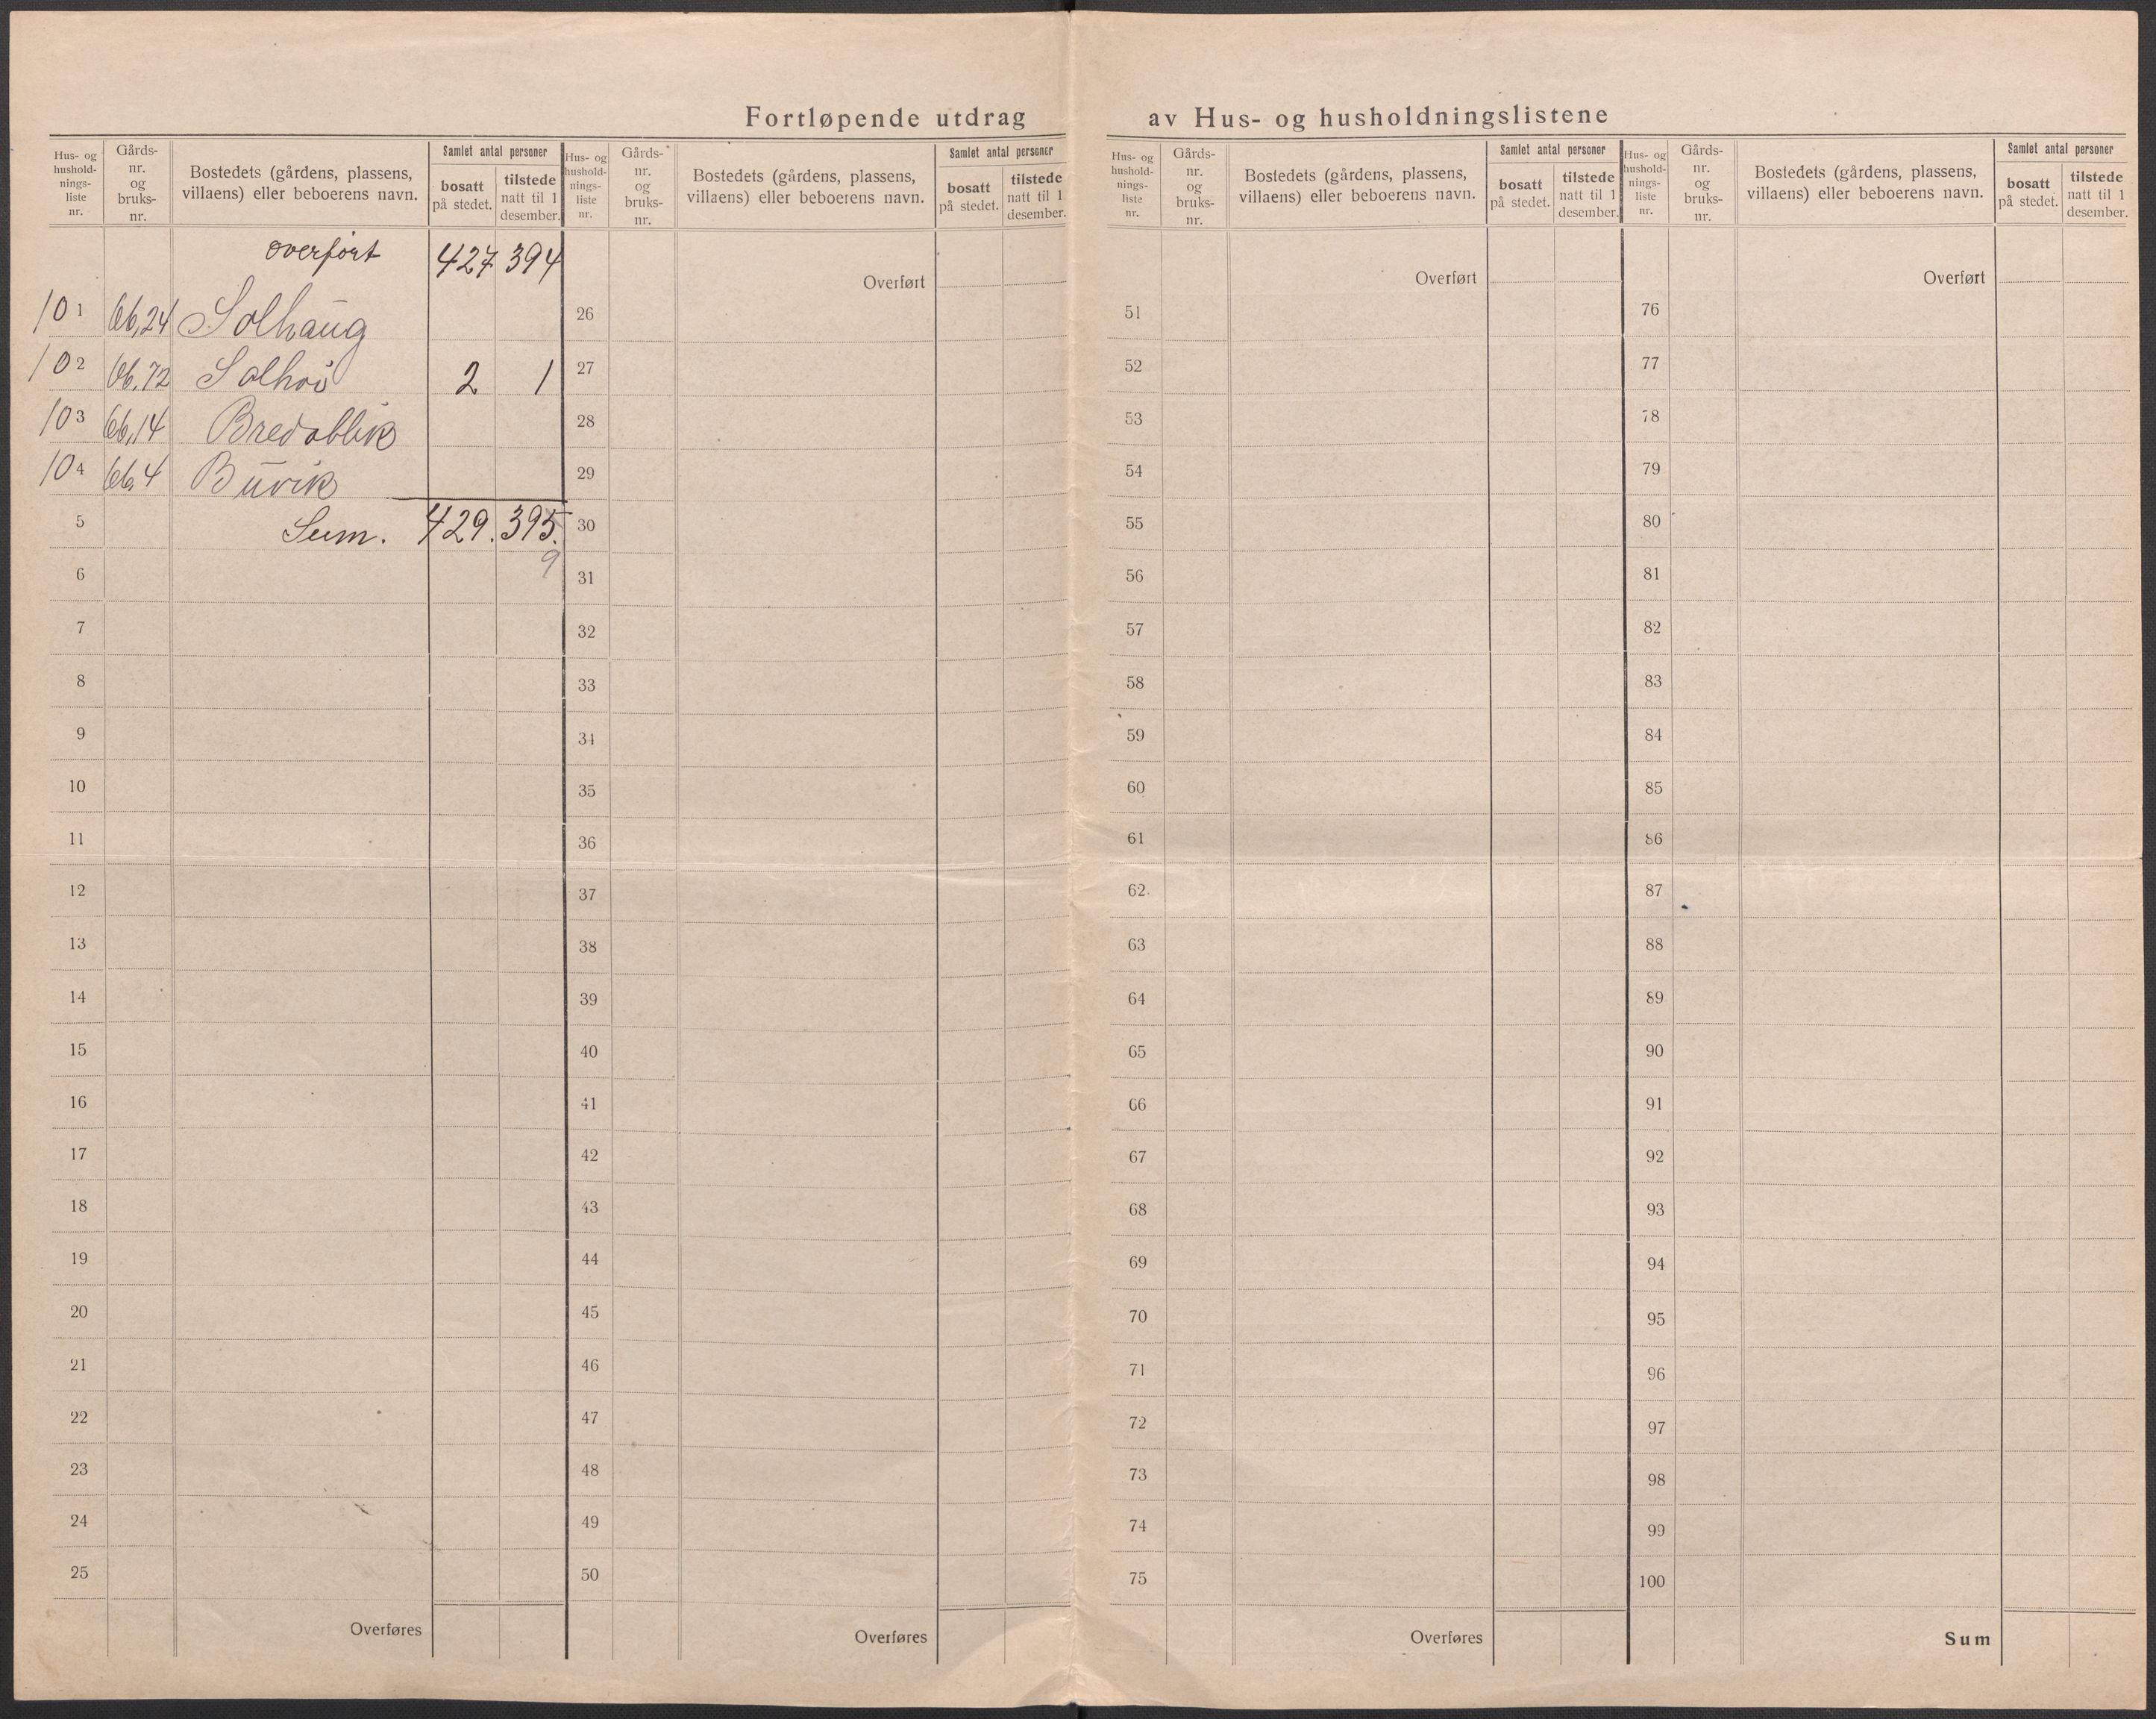 Fortløpende utdrag av Hus- og husholdningslistene
Hus- og
hushold-
nings-
liste
nr.
Gårds-
nr.
og
bruks-
nr.
Bostedets (gårdens, plassens,
villaens) eller beboerens navn.
Samlet antal personer
bosatt
på stedet.
tilstede
natt til 1
desember.
overført 427 394
101 66,24 Solhaug
102 66,72 Solhøi 2 1
103 66,14 Bredablik
104 66,4 Buvik
5 Sum. 429. 395.
9
6
7
8
9
10
11
12
13
14
15
16
17
18
19
20
21
22
23
24
25
Overføres
Hus- og
hushold-
nings-
liste
nr.
Gårds-
nr.
og
bruks-
nr.
Bostedets (gårdens, plassens,
villaens) eller beboerens navn.
Samlet antal personer
bosatt
på stedet.
tilstede
natt til 1
desember.
Overført
26
27
28
29
30
31
32
33
34
35
36
37
38
39
40
41
42
43
44
45
46
47
48
49
50
Overføres
Hus- og
hushold-
nings-
liste
nr.
Gårds-
nr.
og
bruks-
nr.
Bostedets (gårdens, plassens,
villaens) eller beboerens navn.
Samlet antal personer
bosatt
på stedet.
tilstede
natt til 1
desember.
Overført
51
52
53
54
55
56
57
58
59
60
61
62
63
64
65
66
67
68
69
70
71
72
73
74
75
Overføres
Hus- og
hushold-
nings-
liste
nr.
Gårds-
nr.
og
bruks-
nr.
Bostedets (gårdens, plassens,
villaens) eller beboerens navn.
Samlet antal personer
bosatt
på stedet.
tilstede
natt til 1
desember.
Overført
76
77
78
79
80
81
82
83
84
85
86
87
88
89
90
91
92
93
94
95
96
97
98
99
100
Sum